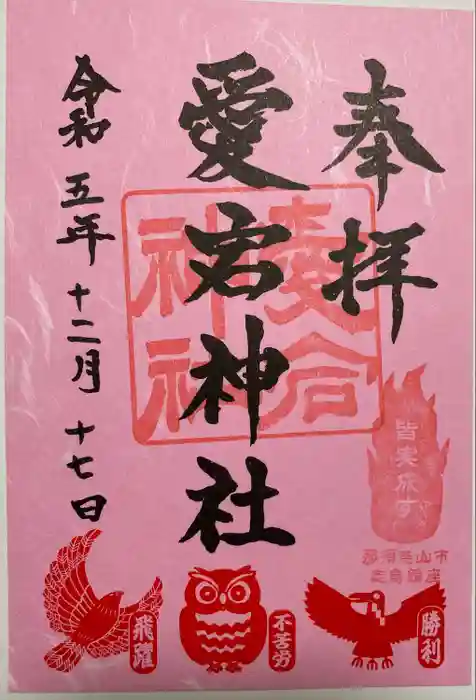 奉拝
愛宕神社
愛宕
神社
令和五年十二月十七日
那須烏山市
鎮座
飛躍
不苦労
勝利